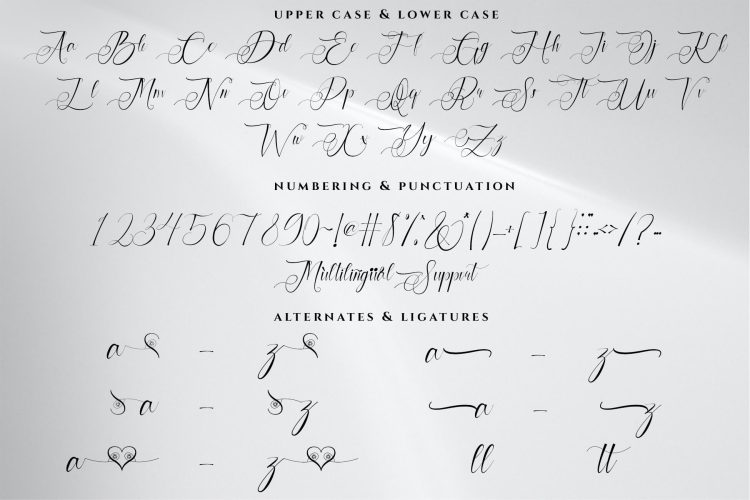 UPPER CASE & LOWER CASE
Aa Bb Cc Dd Ee Ff Gg Hh Ii Jj Kk
Ll Mm Nn Oo Pp Qq Rr Ss Tt Uu Vv
Ww Xx Yy Zz
NUMBERING & PUNCTUATION
1234567890~!@#$%^&*()_+[]{}:;"',.<>/?-
Multilingual Support
ALTERNATES & LIGATURES
a – z a – z
a – z a – z
a – z ll tt